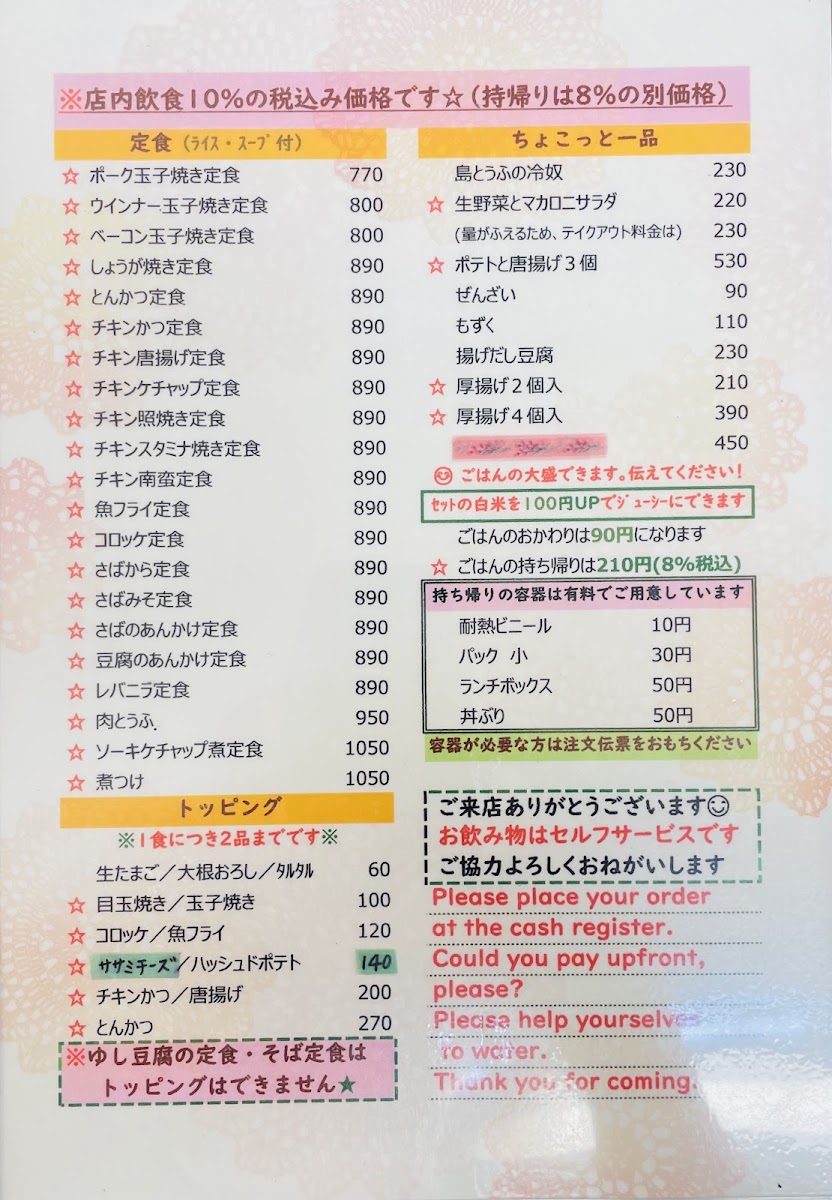 ※店内飲食10%の税込み価格です☆(持帰りは8%の別価格)
定食 (ライス・スープ付)
☆ ポーク玉子焼き定食 770
☆ ウインナー玉子焼き定食 800
☆ ベーコン玉子焼き定食 800
☆ しょうが焼き定食 890
☆ とんかつ定食 890
☆ チキンかつ定食 890
☆ チキン唐揚げ定食 890
☆ チキンケチャップ定食 890
☆ チキン照焼き定食 890
☆ チキンスタミナ焼き定食 890
☆ チキン南蛮定食 890
☆ 魚フライ定食 890
☆ コロッケ定食 890
☆ さばから定食 890
☆ さばみそ定食 890
☆ さばのあんかけ定食 890
☆ 豆腐のあんかけ定食 890
☆ レバニラ定食 890
☆ 肉とうふ 950
☆ ソーキケチャップ煮定食 1050
☆ 煮つけ 1050
トッピング
※1食につき2品までです※
生たまご/大根おろし/タルタル 60
☆ 目玉焼き/玉子焼き 100
☆ コロッケ/魚フライ 120
☆ ササミチーズ/ハッシュドポテト 140
☆ チキンかつ/唐揚げ 200
☆ とんかつ 270
※ゆし豆腐の定食・そば定食は
トッピングはできません★
ちょこっと一品
島とうふの冷奴 230
☆ 生野菜とマカロニサラダ 220
(量がふえるため、テイクアウト料金は) 230
☆ ポテトと唐揚げ3個 530
ぜんざい 90
もずく 110
揚げだし豆腐 230
☆ 厚揚げ2個入 210
☆ 厚揚げ4個入 390
450
ごはんの大盛できます。伝えてください!
セットの白米を100円UPでジューシーにできます
ごはんのおかわりは90円になります
☆ ごはんの持ち帰りは210円(8%税込)
持ち帰りの容器は有料でご用意しています
耐熱ビニール 10円
パック 小 30円
ランチボックス 50円
丼ぶり 50円
容器が必要な方は注文伝票をおもちください
ご来店ありがとうございます☺
お飲み物はセルフサービスです
ご協力よろしくおねがいします
Please place your order
at the cash register.
Could you pay upfront,
please?
Please help yourselves
to water.
Thank you for coming.